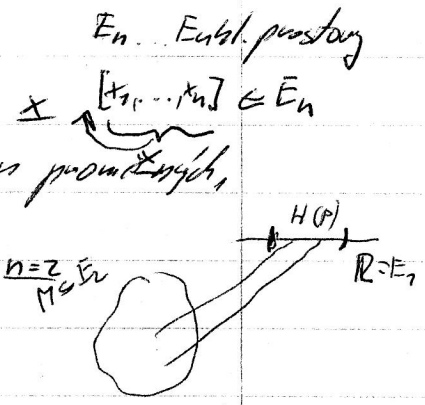 En .. Eukl. prostory
x [x1,...,xn] ∈ En
n proměnných,
H(p)
n=2
M⊆E2
R=E1